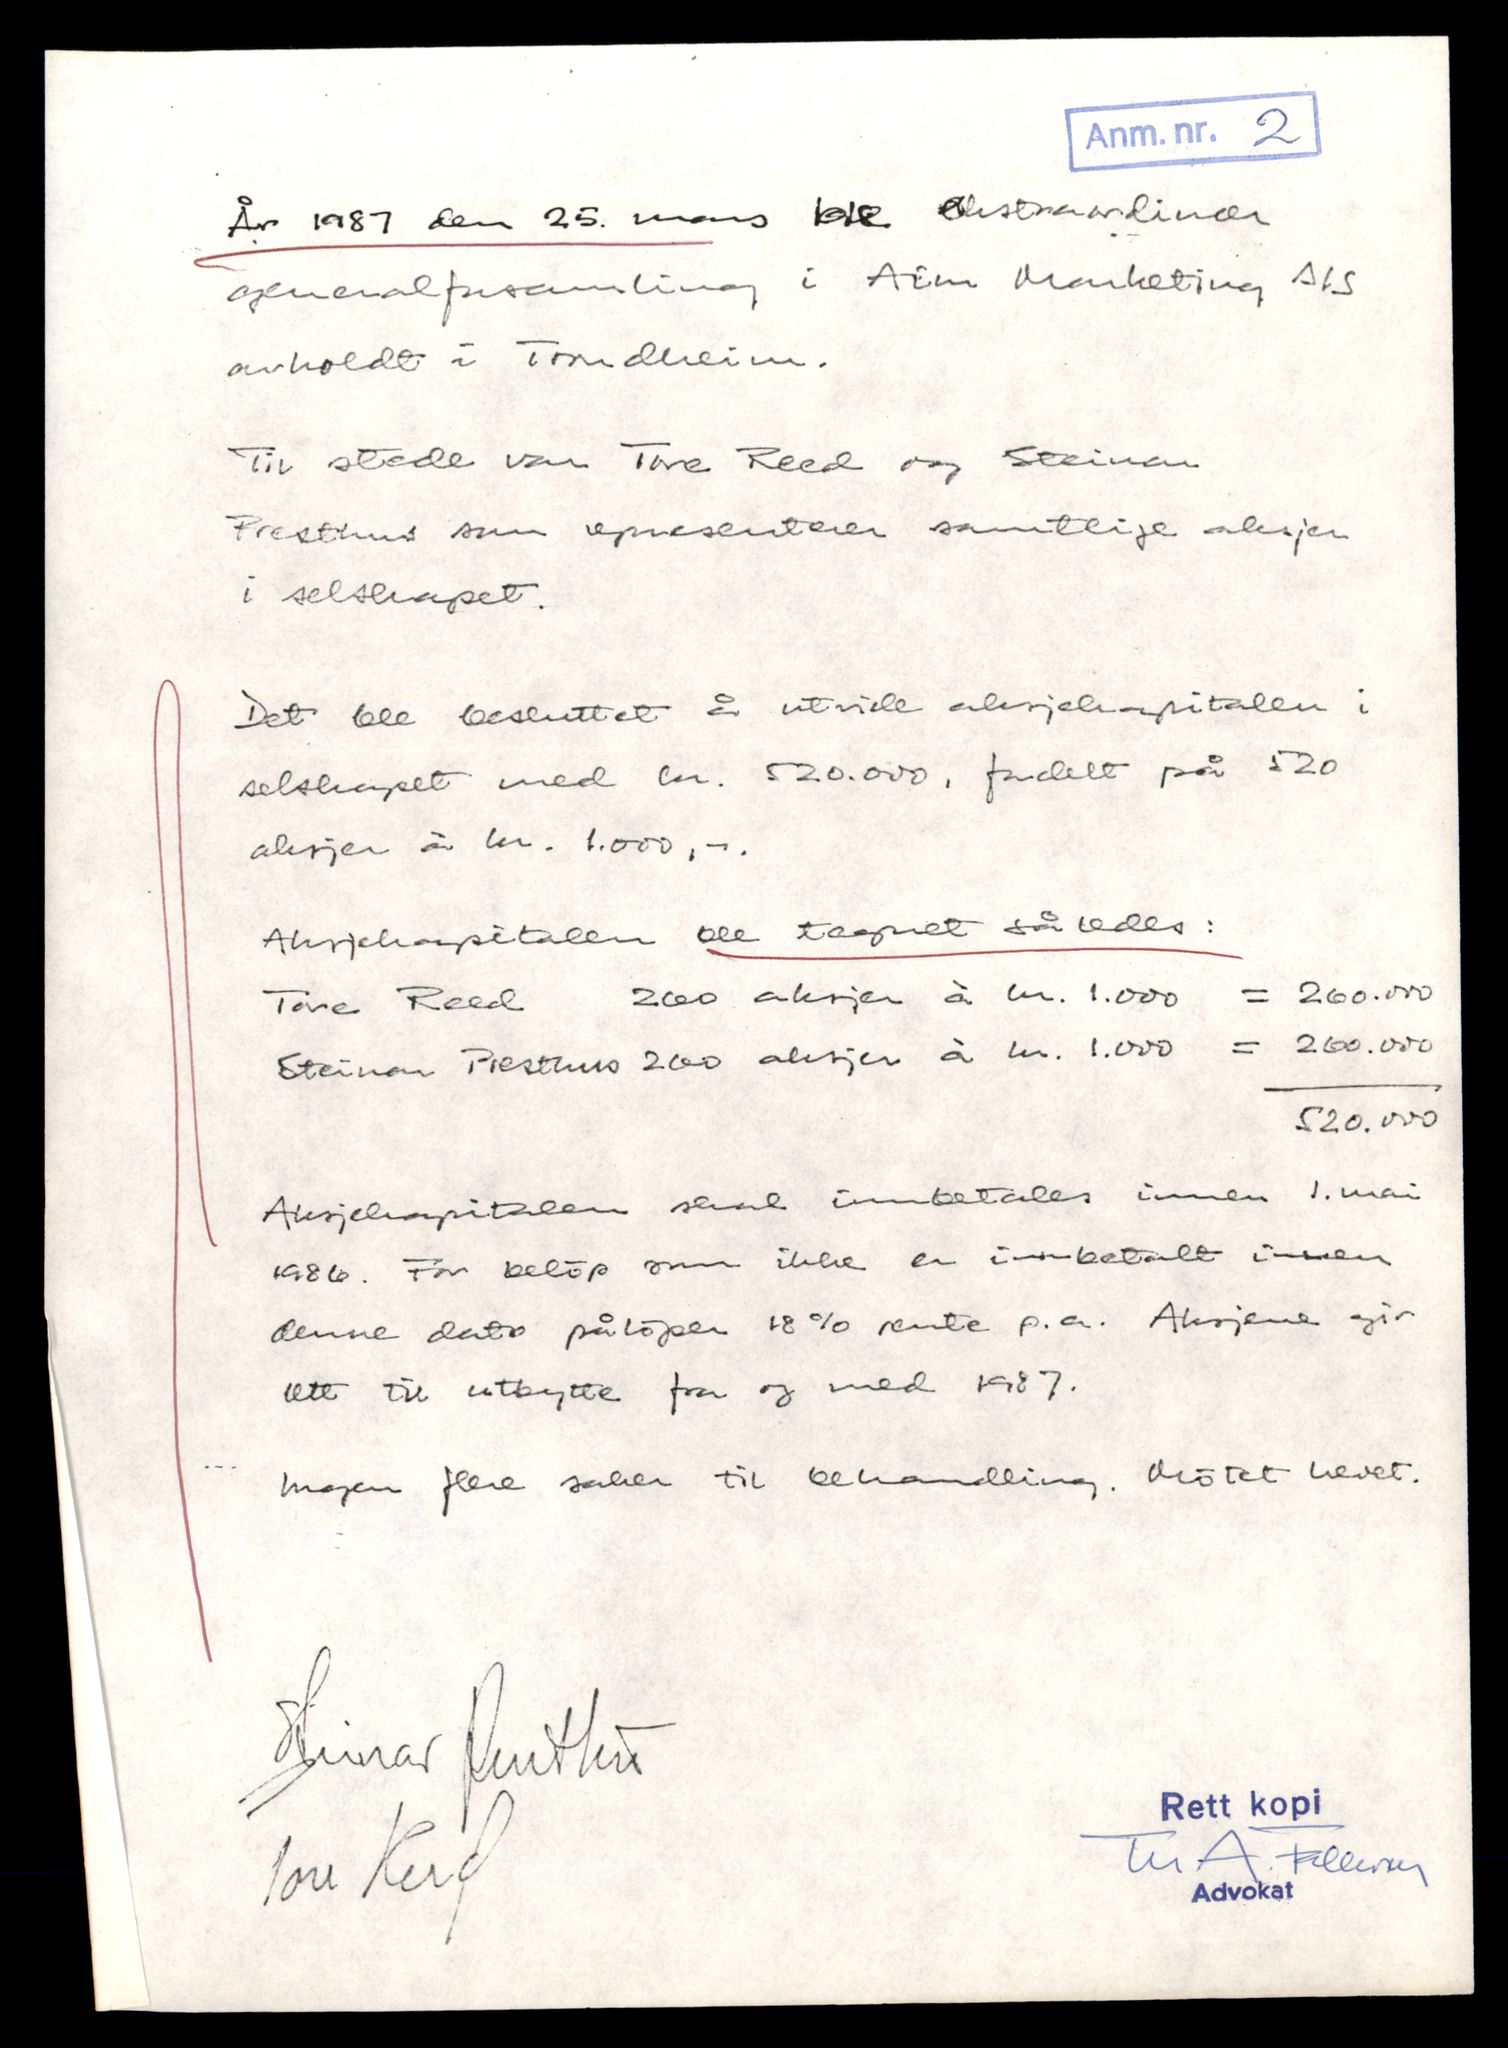 Anm. nr. 2
År 1987 den 25. mars ble ekstraordinær
generalforsamling i Aim Marketing A/S
avholdt i Trondheim.
Til stede var Tore Reed og Steinar
Presthus som representerer samtlige aksjer
i selskapet.
Det ble besluttet å utvide aksjekapitalen i
selskapet med kr. 520.000, fordelt på 520
aksjer à kr. 1.000,-.
Aksjekapitalen ble tegnet således:
Tore Reed 260 aksjer à kr. 1.000 = 260.000
Steinar Presthus 260 aksjer à kr. 1.000 = 260.000
520.000
Aksjekapitalen skal innbetales innen 1. mai
1986. For beløp som ikke er innbetalt innen
denne dato påløper 18% rente p.a. Aksjene gir
rett til utbytte fra og med 1987.
Ingen flere saker til behandling. Møtet hevet.
Steinar Presthus
Tore Reed
Rett kopi
Advokat